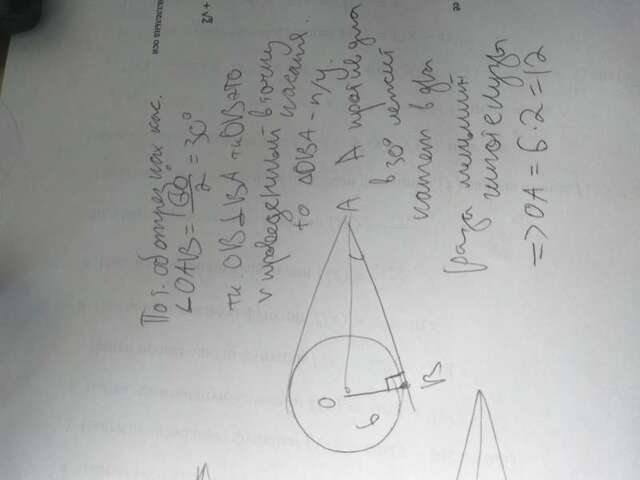 По т. об отрез ках кас.
∠OAB = 60°/2 = 30°
т.к. OB⊥BA т.к OB это
r проведенный в точку
касания
то ΔOBA - п/у.
А против угла
в 30° лежит
катет в два
раза меньший
гипотенузы
=> OA = 6·2=12
A
O
6
B